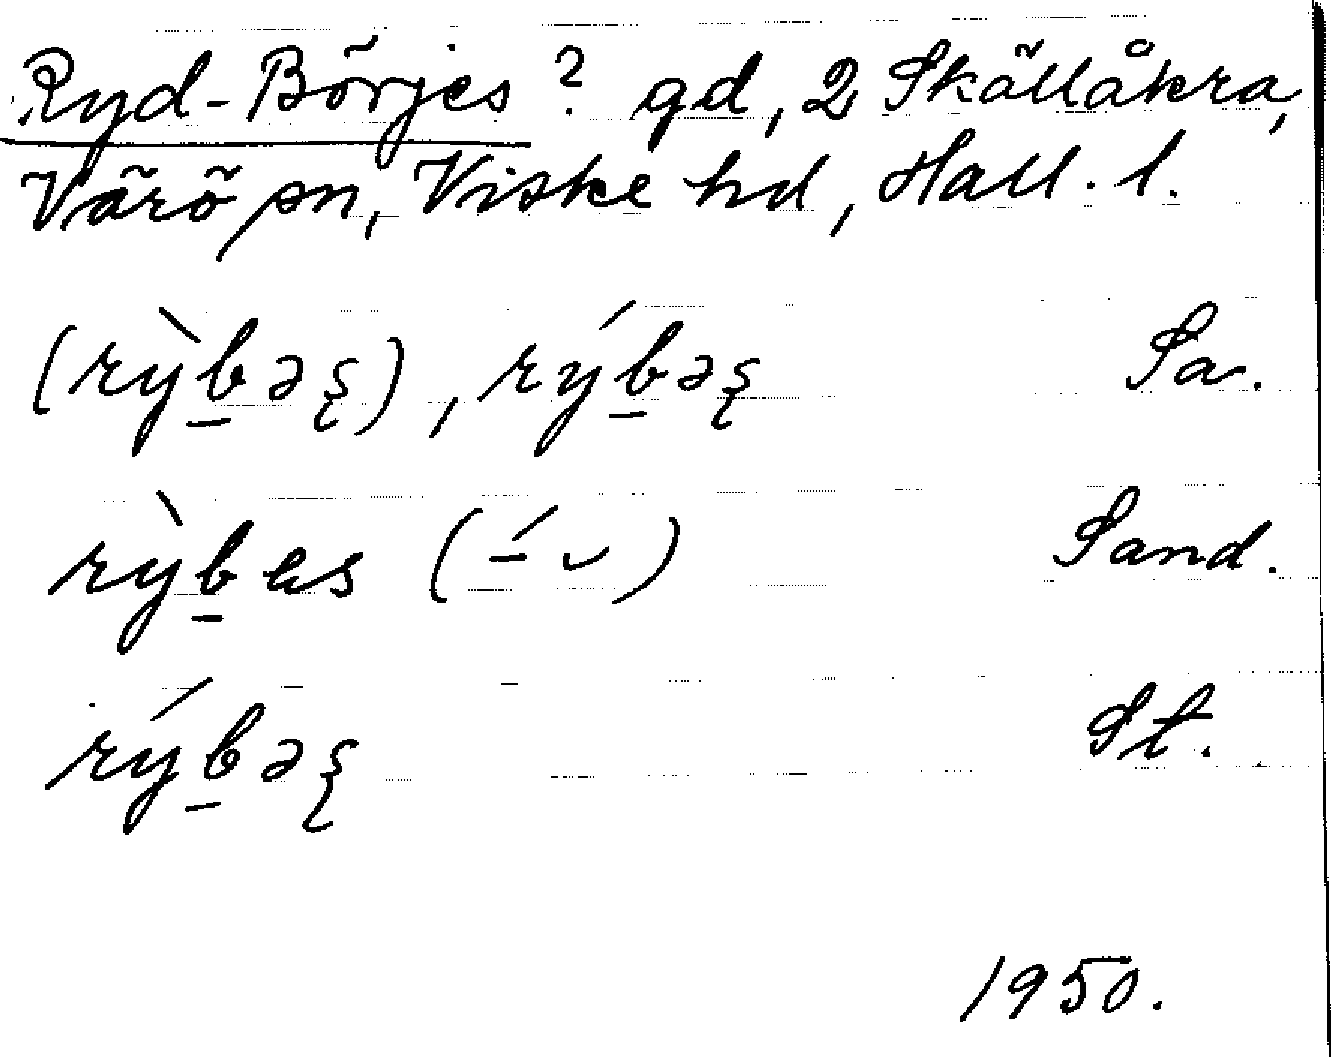 Ryd-Börjes? gd, 2 Skällåkra,
Värö sn, Viske hd, Hall. l.
(rỳḇəş), rýḇəş Sa.
rỳḇes (–́ ᴗ) Sand.
rýḇəş St.
1950.